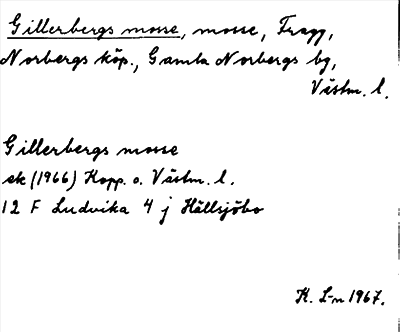 Gillerbergs mosse, mosse, Fragg,
Norbergs köp., Gamla Norbergs bg,
Västm. l.
Gillerbergs mosse
ek (1966) Kopp. o. Västm. l.
12 F Ludvika 4 j Hällsjöbo
K. L-n 1967.